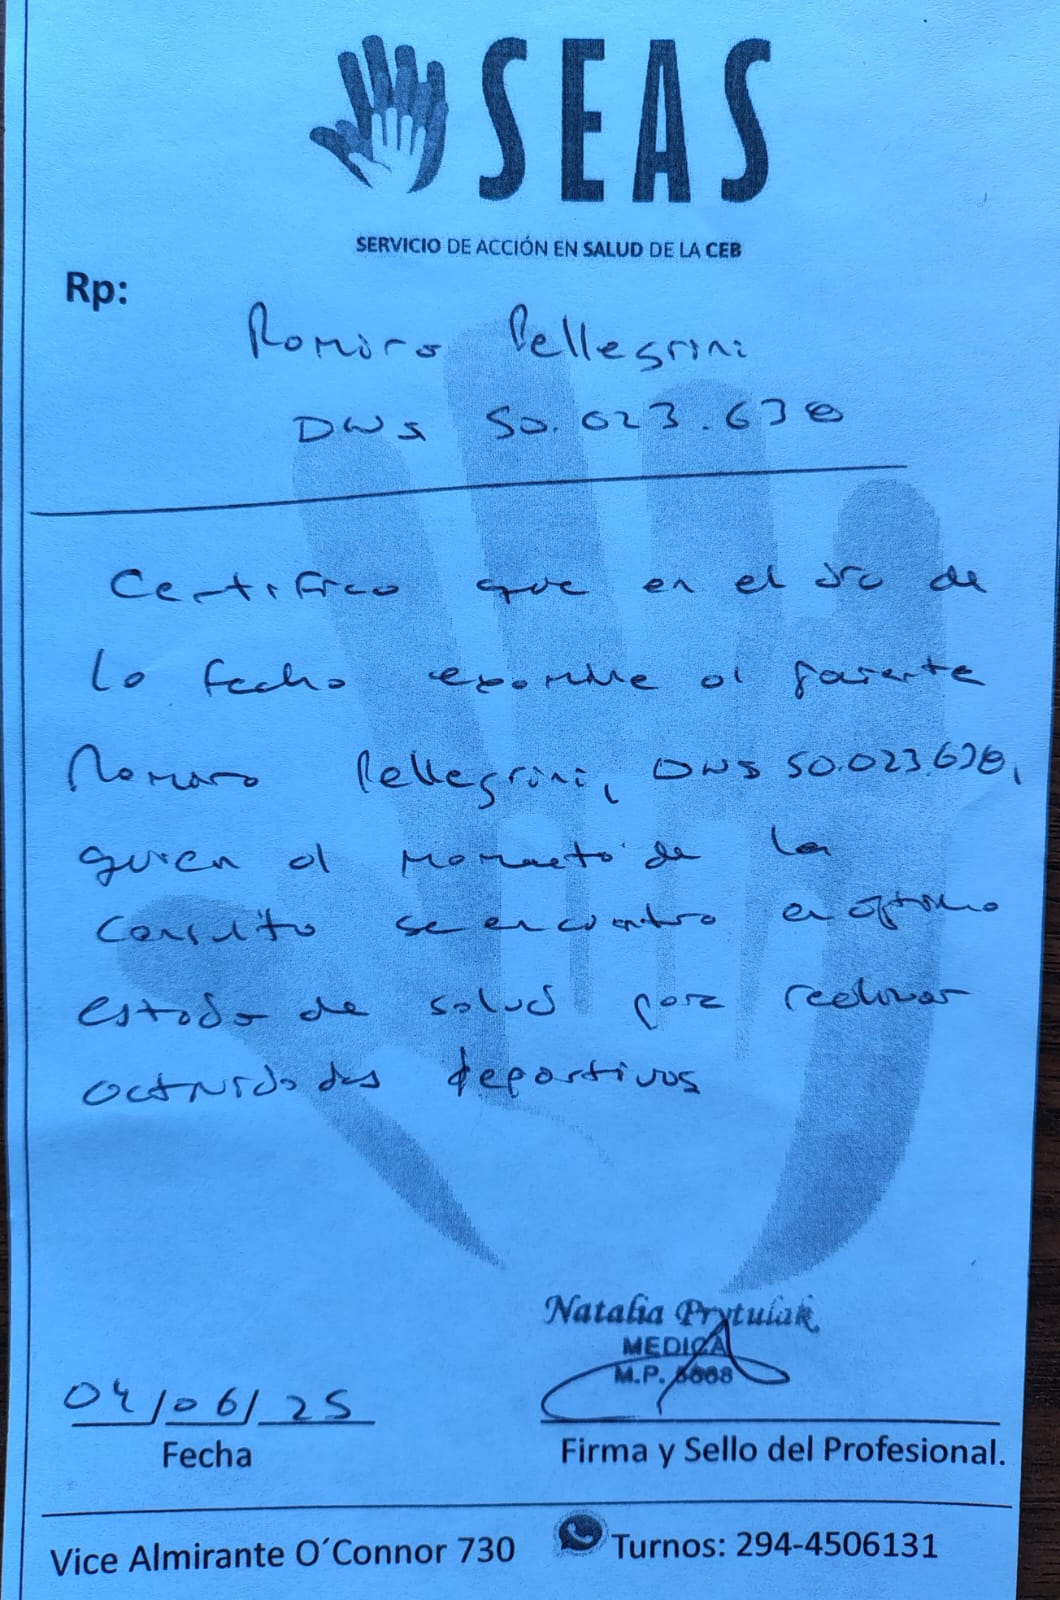 SEAS
SERVICIO DE ACCIÓN EN SALUD DE LA CEB
Rp:
Ramiro Pellegrini
DNI 50.023.638
Certifico que en el día de
la fecha examine al paciente
Ramiro Pellegrini, DNI 50.023.638,
quien al momento de la
consulta se encontro en optimo
estado de salud para realizar
actividades deportivas
Natalia Prytulak
MEDICA
M.P.
04/06/25
Fecha
Firma y Sello del Profesional.
Vice Almirante O´Connor 730
Turnos: 294-4506131